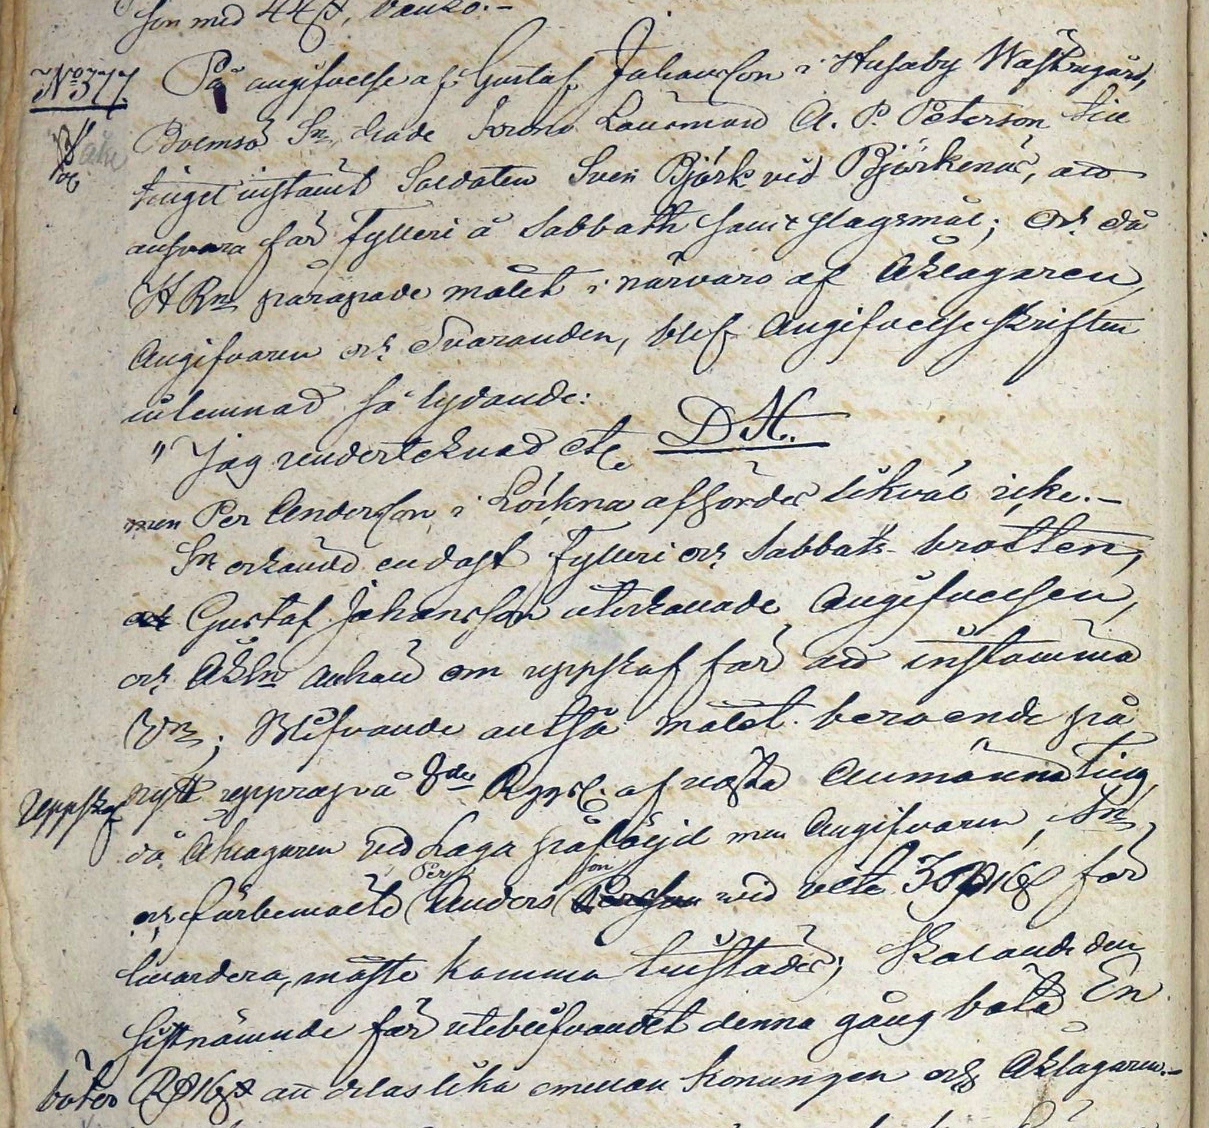 son med 44 ß, banko.-
No 377 På angifvelse af Gustaf Johansson i Husaby Wästregård,
Doemsö Sn, hade Krono Länsman A. P. Peterson till
tinget instämt Soldaten Sven Björk vid Björkenäs, att
ansvara för Fylleri å Sabbath samt slagsmål; Och då
H Rn påropade målet i närvaro af Åklagaren,
Angifvaren och Svaranden, blef Angifvelse skriften
inlemnad så lydande:
" Jag undertecknad etc D.H.
men Per Anderson i Löckna afhördes likväl icke.-
Sn erkände endast Fylleri och Sabbats brotten,
Gustaf Johansson återkallade Angifvelsen,
och Åkln anhöll om uppskof för att instämma
; Blifvande altså målet beroende på
Uppskof nytt upprop å 8de af nästa Allmänna Ting,
då Åklagaren vid Laga påföljd men Angifvaren, Sn,
Per son
och förbemälte Anders Persson vid vite 3 R 16 ß för
hvardera, måste komma tillstädes; Skolande den
sistnämnde för uteblifvandet denna gång böta En
böter R 16 ß att delas lika emellan Konungen och Åklagaren.-